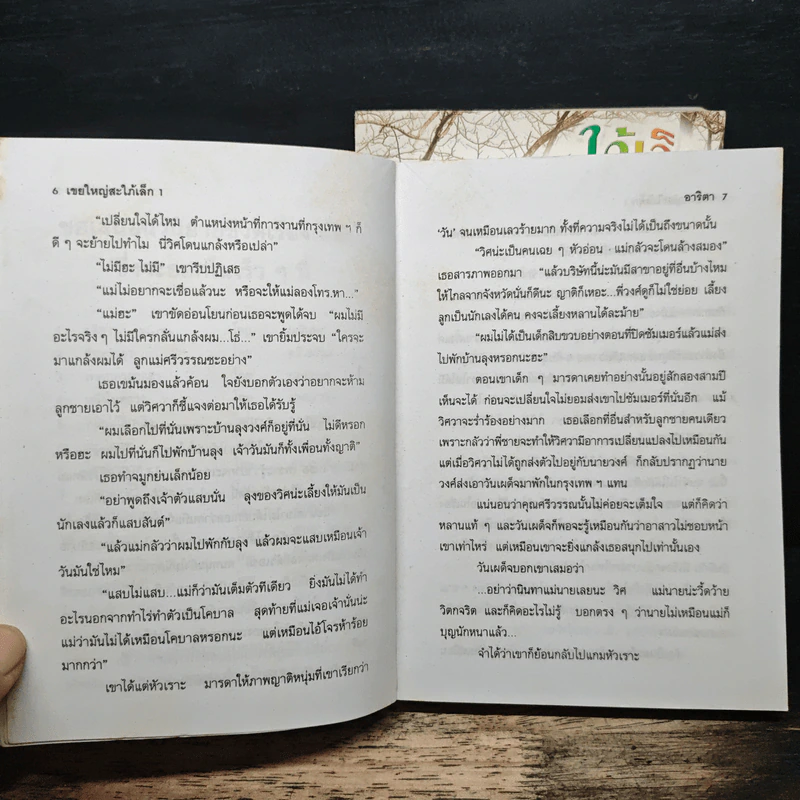 ใต้เ
6 เขยใหญ่สะใภ้เล็ก 1
“เปลี่ยนใจได้ไหม ตำแหน่งหน้าที่การงานที่กรุงเทพ ฯ ก็
ดี ๆ จะย้ายไปทำไม นี่วิศโดนแกล้งหรือเปล่า”
“ไม่มีฮะ ไม่มี” เขารีบปฏิเสธ
“แม่ไม่อยากจะเชื่อแล้วนะ หรือจะให้แม่ลองโทร.หา...”
“แม่ฮะ” เขาขัดอ่อนโยนก่อนเธอจะพูดได้จบ “ผมไม่มี
อะไรจริง ๆ ไม่มีใครกลั่นแกล้งผม...โธ่...” เขายิ้มประจบ “ใครจะ
มาแกล้งผมได้ ลูกแม่ศรีวรรณซะอย่าง”
เธอเขม้นมองแล้วค้อน ใจยังบอกตัวเองว่าอยากจะห้าม
ลูกชายเอาไว้ แต่วิศวาก็ชี้แจงต่อมาให้เธอได้รับรู้
“ผมเลือกไปที่นั่นเพราะบ้านลุงวงศ์ก็อยู่ที่นั่น ไม่ดีหรอก
หรือฮะ ผมไปที่นั่นก็ไปพักบ้านลุง เจ้าวันมันก็ทั้งเพื่อนทั้งญาติ”
เธอทำจมูกย่นเล็กน้อย
“อย่าพูดถึงเจ้าตัวแสบนั่น ลุงของวิศน่ะเลี้ยงให้มันเป็น
นักเลงแล้วก็แสบสันต์”
“แล้วแม่กลัวว่าผมไปพักกับลุง แล้วผมจะแสบเหมือนเจ้า
วันมันใช่ไหม”
“แสบไม่แสบ...แม่ก็ว่ามันเต็มตัวทีเดียว ยิ่งมันไม่ได้ทำ
อะไรนอกจากทำไร่ทำตัวเป็นโคบาล สุดท้ายที่แม่เจอเจ้านั่นน่ะ
แม่ว่ามันไม่ได้เหมือนโคบาลหรอกนะ แต่เหมือนไอ้โจรห้าร้อย
มากกว่า”
เขาได้แต่หัวเราะ มารดาให้ภาพญาติหนุ่มที่เขาเรียกว่า
อาริตา 7
‘วัน’ จนเหมือนเลวร้ายมาก ทั้งที่ความจริงไม่ได้เป็นถึงขนาดนั้น
“วิศน่ะเป็นคนเฉย ๆ หัวอ่อน แม่กลัวจะโดนล้างสมอง”
เธอสารภาพออกมา “แล้วบริษัทนี้น่ะมันมีสาขาอยู่ที่อื่นบ้างไหม
ให้ไกลจากจังหวัดนั่นก็ดีนะ ญาติก็เหอะ...พี่วงศ์ดูก็ไม่ใช่ย่อย เลี้ยง
ลูกเป็นนักเลงได้คน คงจะเลี้ยงหลานได้ละม้าย”
“ผมไม่ได้เป็นเด็กสิบขวบอย่างตอนที่ปิดซัมเมอร์แล้วแม่ส่ง
ไปพักบ้านลุงหรอกนะฮะ”
ตอนเขาเด็ก ๆ มารดาเคยทำอย่างนั้นอยู่สักสองสามปี
เห็นจะได้ ก่อนจะเปลี่ยนใจไม่ยอมส่งเขาไปซัมเมอร์ที่นั่นอีก แม้
วิศวาจะร่ำร้องอย่างมาก เธอเลือกที่อื่นสำหรับลูกชายคนเดียว
เพราะกลัวว่าพี่ชายจะทำให้วิศวามีอาการเปลี่ยนแปลงไปเหมือนกัน
แต่เมื่อวิศวาไม่ได้ถูกส่งตัวไปอยู่กับนายวงศ์ ก็กลับปรากฏว่านาย
วงศ์ส่งเอาวันเผด็จมาพักในกรุงเทพ ฯ แทน
แน่นอนว่าคุณศรีวรรณนั้นไม่ค่อยจะเต็มใจ แต่ก็คิดว่า
หลานแท้ ๆ และวันเผด็จก็พอจะรู้เหมือนกันว่าอาสาวไม่ชอบหน้า
เขาเท่าไหร่ แต่เหมือนเขาจะยิ่งแกล้งเธอสนุกไปเท่านั้นเอง
วันเผด็จบอกเขาเสมอว่า
...อย่าว่านินทาแม่นายเลยนะ วิศ แม่นายน่ะวี้ดว้าย
วิตกจริต และก็คิดอะไรไม่รู้ บอกตรง ๆ ว่านายไม่เหมือนแม่ก็
บุญนักหนาแล้ว...
จำได้ว่าเขาก็ย้อนกลับไปแกมหัวเราะ